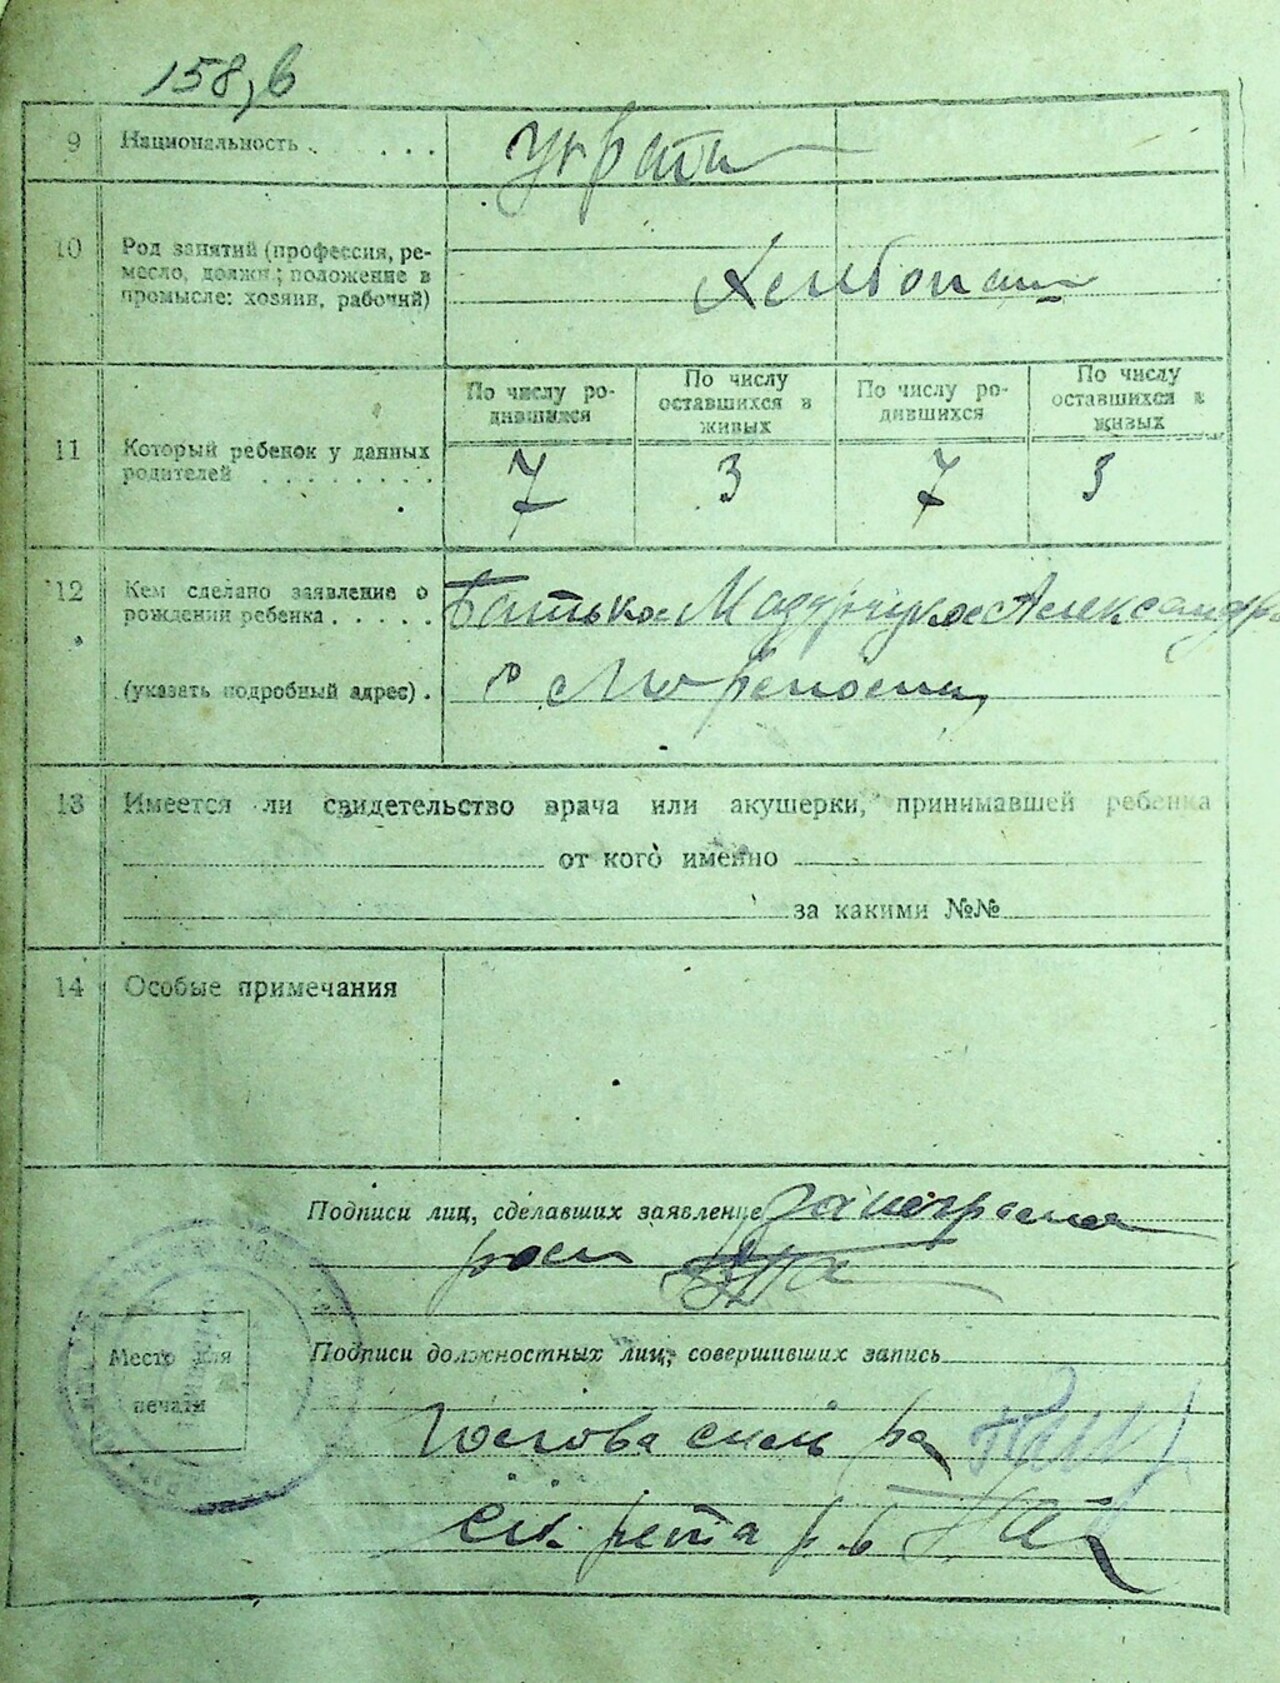 158,в
9 Национальность . . . .
10 Род занятий (профессия, ре-
месло, должн.; положение в
промысле: хозяин, рабочий)
Хлибопаш
По числу ро-
дившихся
По числу
оставшихся в
живых
По числу ро-
дившихся
По числу
оставшихся в
живых
11 Который ребенок у данных
родителей . . . . . . . .
7 3 7 3
12 Кем сделано заявление о
рождении ребенка . . . . .
Батько Мазурчук Александр
(указать подробный адрес) .
с
13 Имеется ли свидетельство врача или акушерки, принимавшей ребенка
от кого именно
за какими №№
14 Особые примечания
Подписи лиц, сделавших заявление
Место для
печати
Подписи должностных лиц, совершивших запись
Голова сель ра
Секретарь